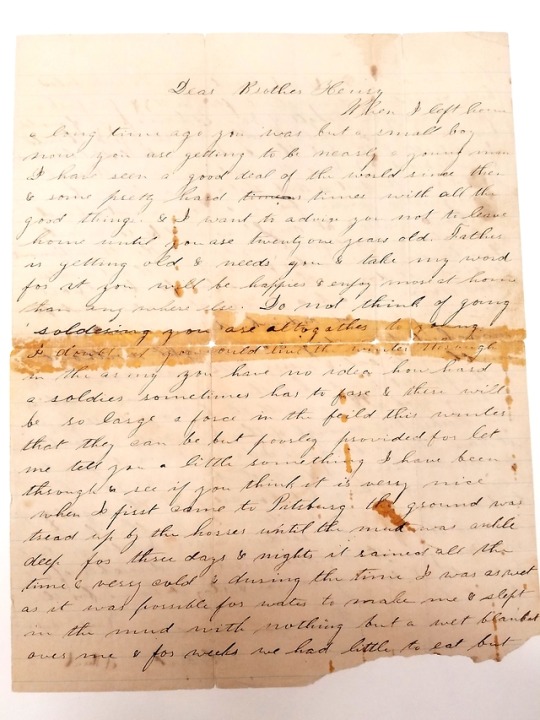 Dear Brother Henry
When I left home
a long time ago you was but a small boy
now you are getting to be nearly a young man
I have seen a good deal of the world since then
& some pretty hard times times with all the
good things & I want to advise you not to leave
home until you are twenty one years old. Father
is getting old & needs you & take my word
for it you will be happier & enjoy more at home
than any where else. Do not think of going
soldering you are altogather to young
I doubt if you could live the winter through
in the army you have no idea how hard
a soldier sometimes has to fare & there will
be so large a force in the feild this winter
that they can be but poorley provided for let
me tell you a little something I have been
through & see if you think it is very nice
when I first came to Pittsburg the ground was
tread up by the horses until the mud was ankle
deep for three days & nights it rained all the
time & very cold & during the time I was as wet
as it was possible for water to make me & slept
in the mud with nothing but a wet blanket
over me & for weeks we had little to eat but